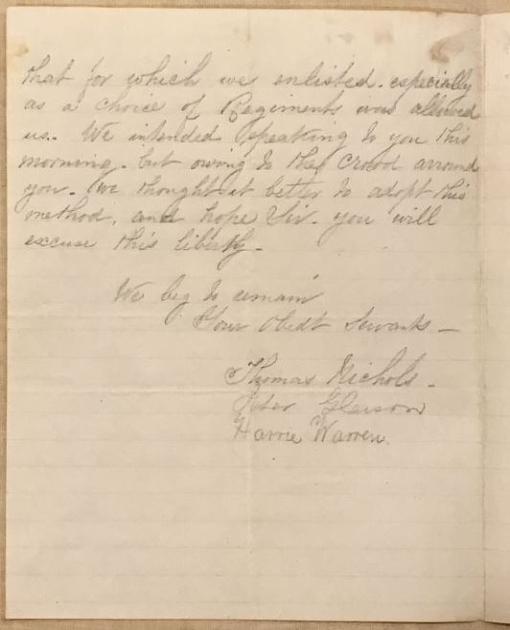 that for which we enlisted. especially
as a choice of Regiments was allowed
us. We intended speaking to you this
morning. but owing to the crowd arround
you. we thought it better to adopt this
method, and hope Sir. you will
excuse this liberty.
We beg to remain
Your Obedt Servants —
Thomas Nichols.
Peter Gleeson
Harrie Warren.